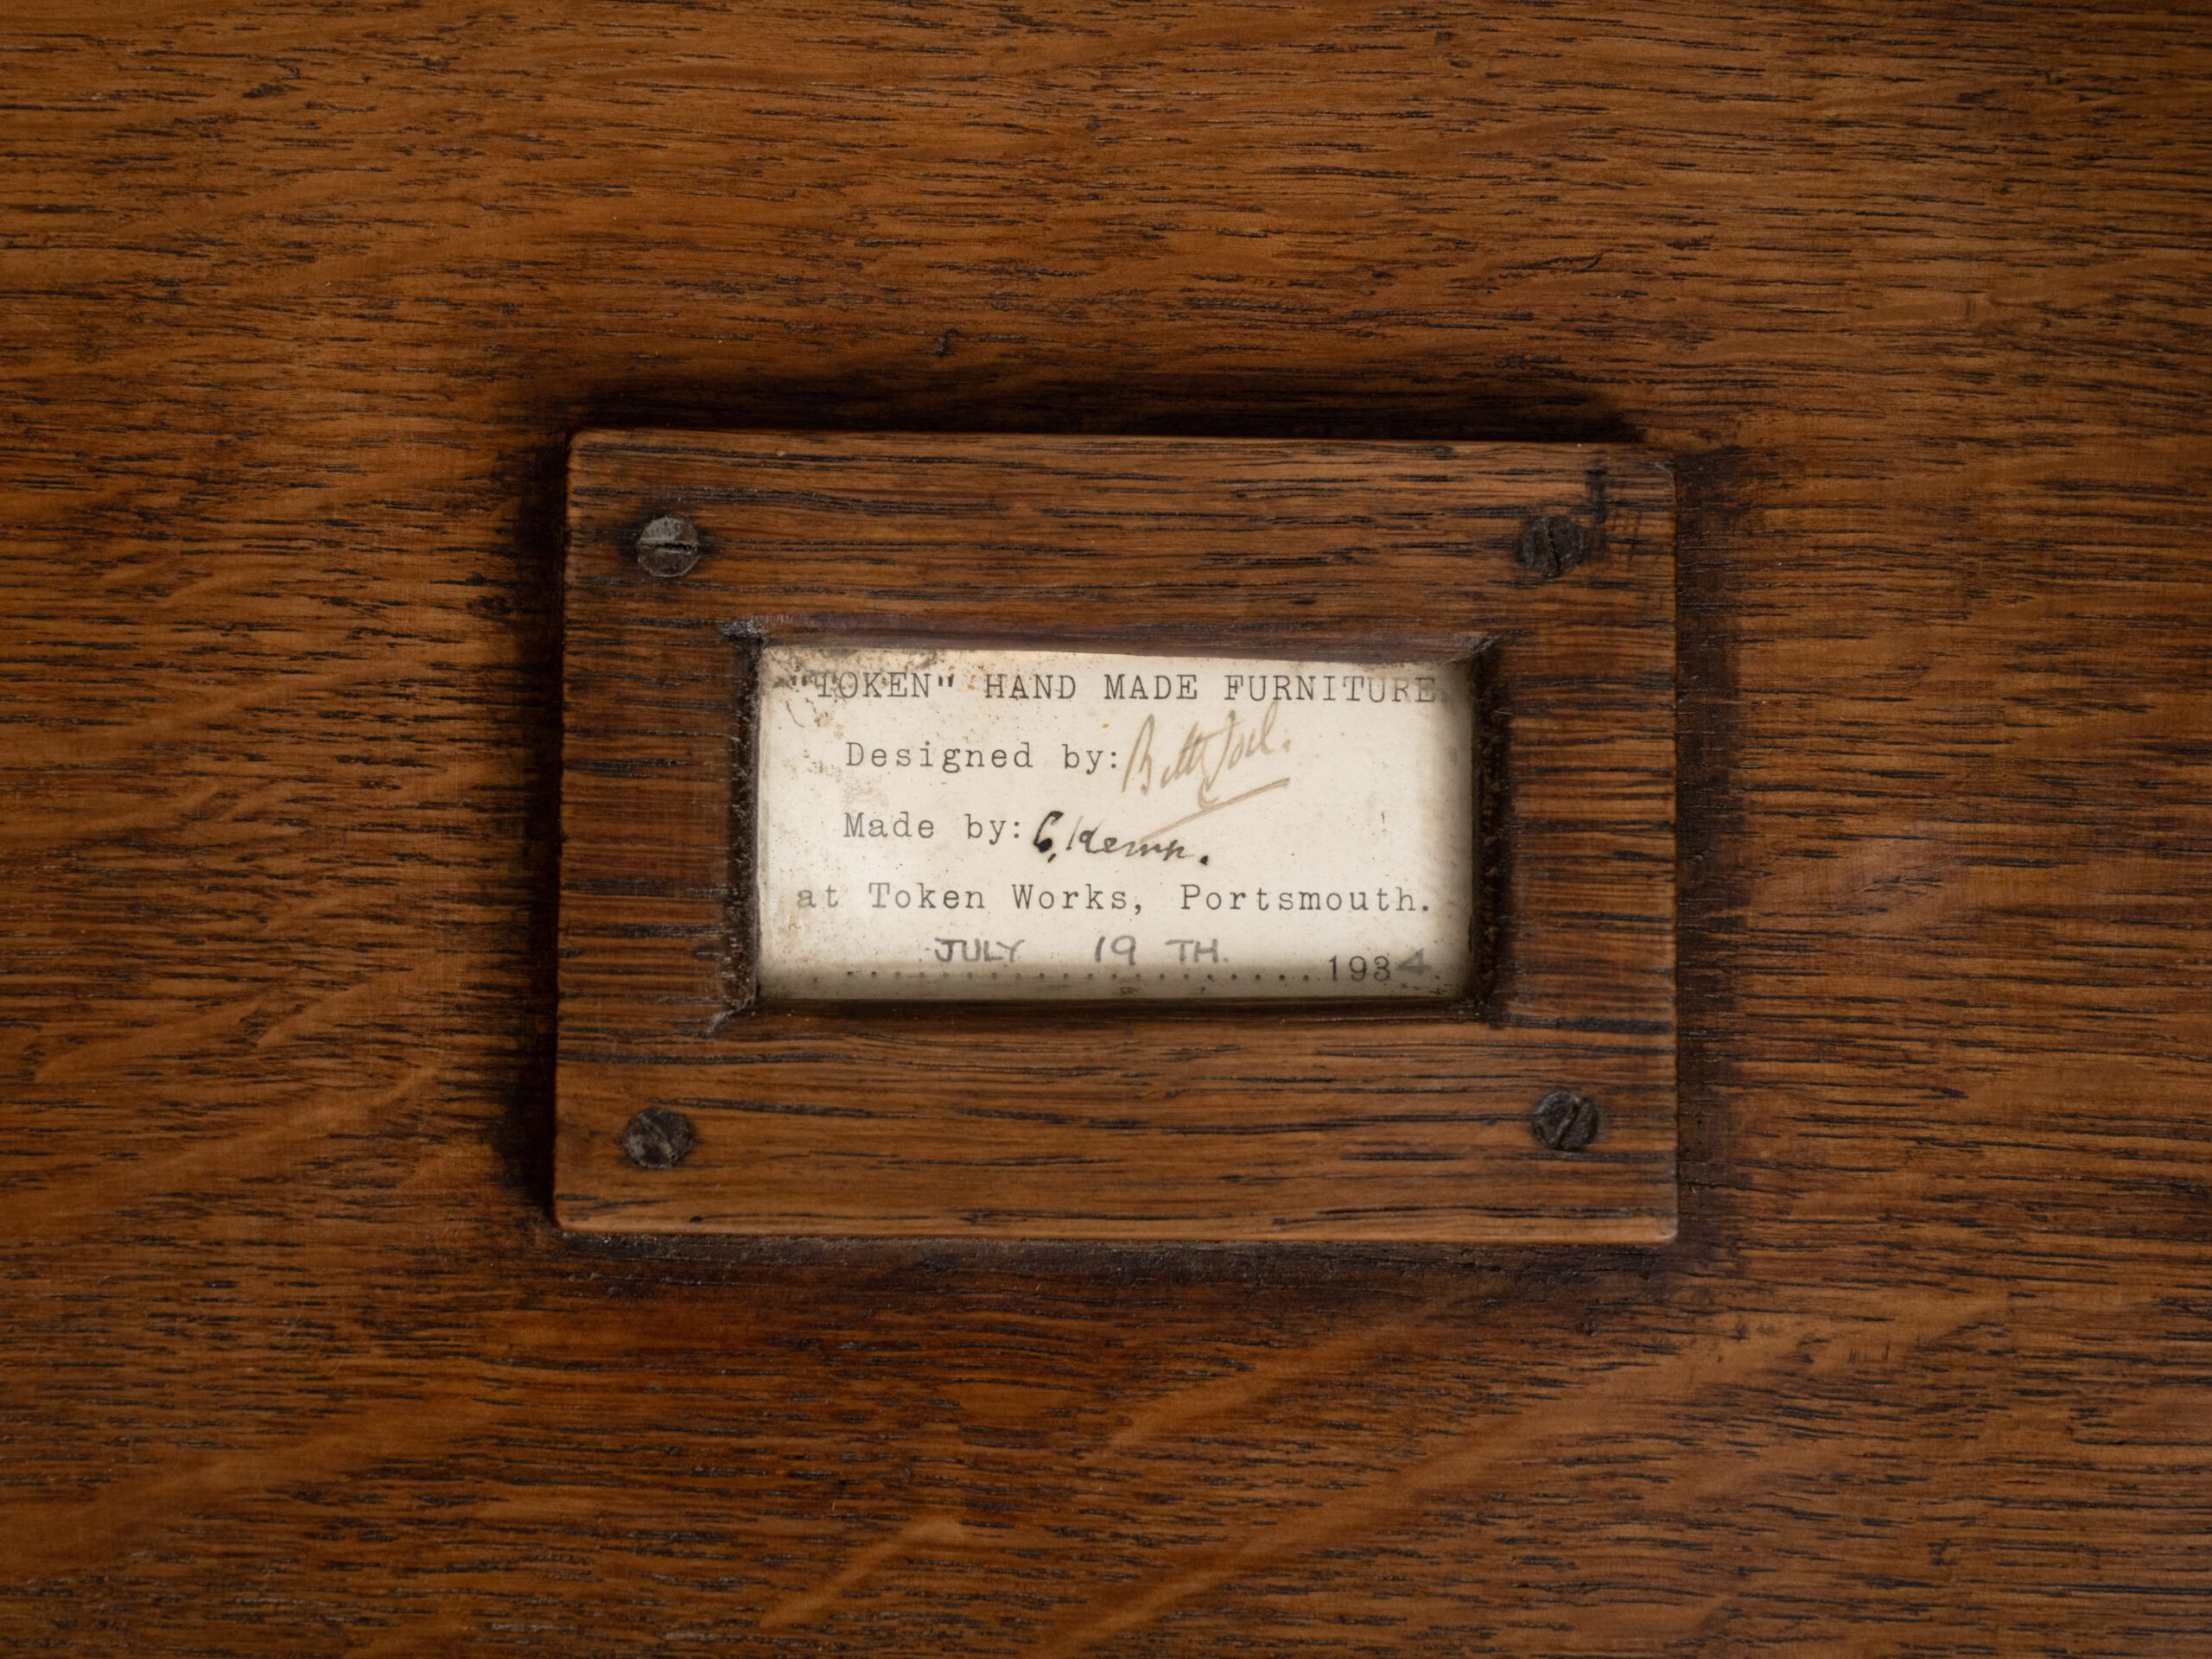 "TOKEN" HAND MADE FURNITURE
Designed by: Betty Joel.
Made by: C. Kemp.
at Token Works, Portsmouth.
JULY 19 TH. 1934.